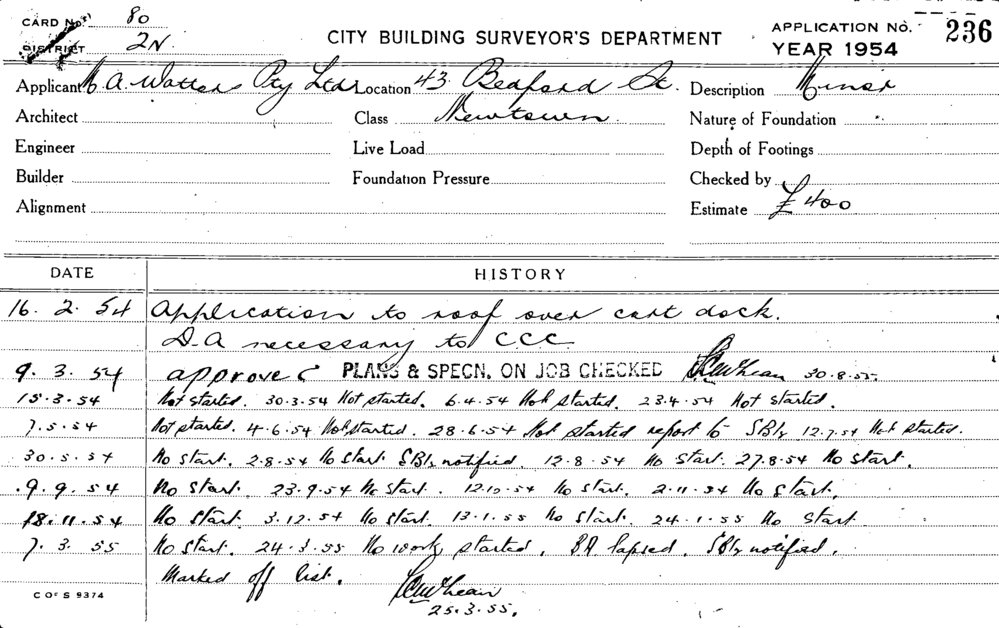 CARD No. 80
DISTRICT 2N
CITY BUILDING SURVEYOR'S DEPARTMENT
APPLICATION No. 236
YEAR 1954
Applicant A. Watters Pty Ltd Location 43 Bedford St. Description Minor
Architect Class Newtown Nature of Foundation
Engineer Live Load Depth of Footings
Builder Foundation Pressure Checked by
Alignment Estimate £400
DATE HISTORY
16. 2. 54 Application to roof over cart dock.
D.A necessary to CCC
9. 3. 54 approved PLANS & SPECN. ON JOB CHECKED 30.8.55.
15.3.54 Not started. 30.3.54 Not started. 6.4.54 Not started. 23.4.54 Not started.
7.5.54 Not started. 4.6.54 Not started. 28.6.54 Not started report to SBIs 12.7.54 Not started.
30.5.54 No start. 2.8.54 No start SBIs notified. 12.8.54 No start. 27.8.54 No start.
9. 9. 54 No start. 23.9.54 No start. 12.10.54 No start. 2.11.54 No start.
18.11.54 No start. 3.12.54 No start. 13.1.55 No start. 24.1.55 No start
7. 3. 55 No start. 24.3.55 No work started. BA lapsed. SBIs notified.
Marked off list.
25.3.55.
C OF S 9374